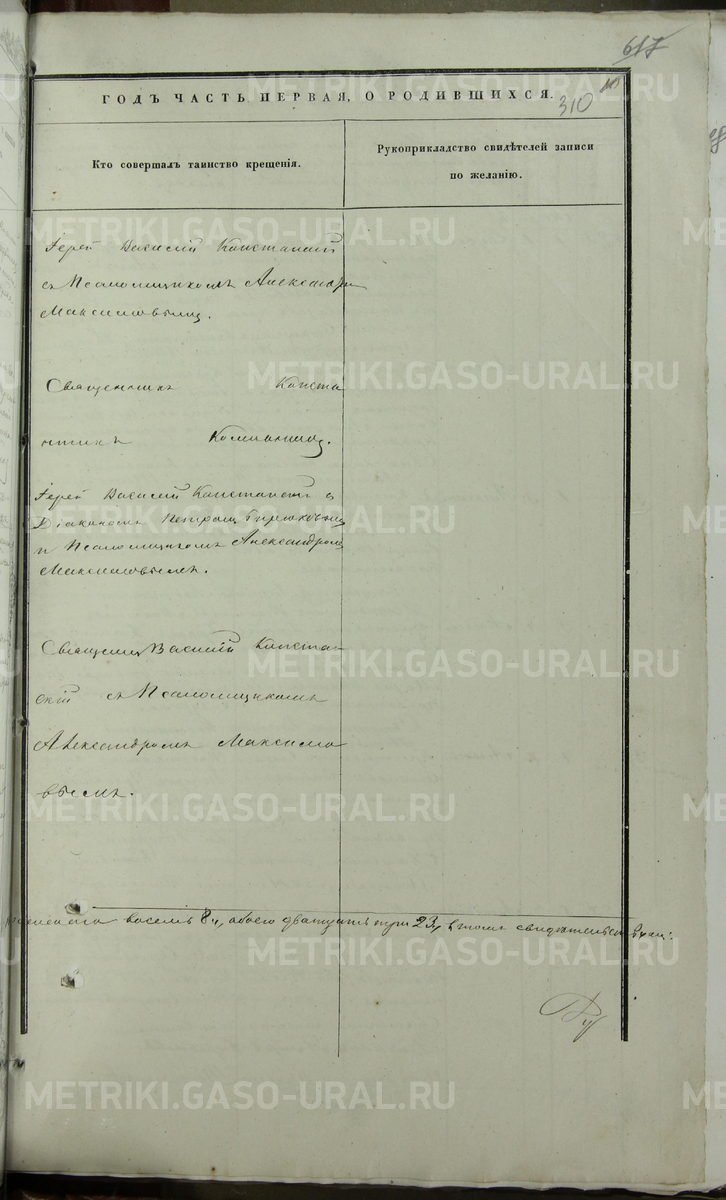 617
310
ГОДЪ ЧАСТЬ ПЕРВАЯ, О РОДИВШИХСЯ.
Кто совершалъ таинство крещенія.
Рукоприкладство свидѣтелей записи
по желанію.
Іерей Василій
съ Псаломщикомъ Александромъ
Максимовымъ.
Священникъ Конста
нтинъ
Іерей Василій с
Діакономъ Петромъ
и Псаломщикомъ Александромъ
Максимовымъ.
Священникъ Василій
скій съ Псаломщикомъ
Александромъ Максимо
вымъ.
женскаго восемь 8, обоего двадцать три 23, въ томъ свидѣтельствуемъ:
METRIKI.GASO-URAL.RU